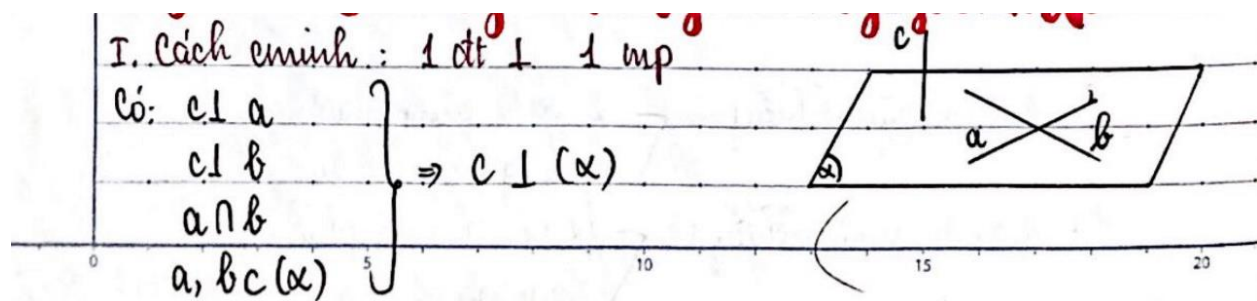 I. Cách cminh : 1 đtt ⊥ 1 mp
Có: c⊥ a
c⊥ b
a∩b
a, b⊂(α)
⇒ c ⊥ (α)
c
a
b
α)
0 5 10 15 20